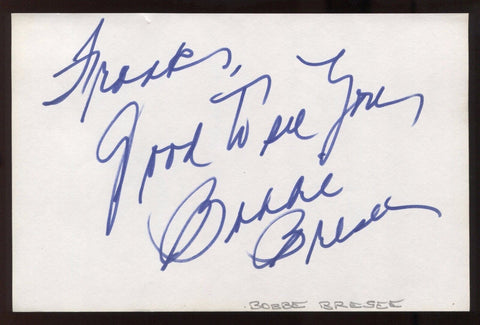 Frank,
Good To see You
Bobbe
Bresee
BOBBE BRESEE